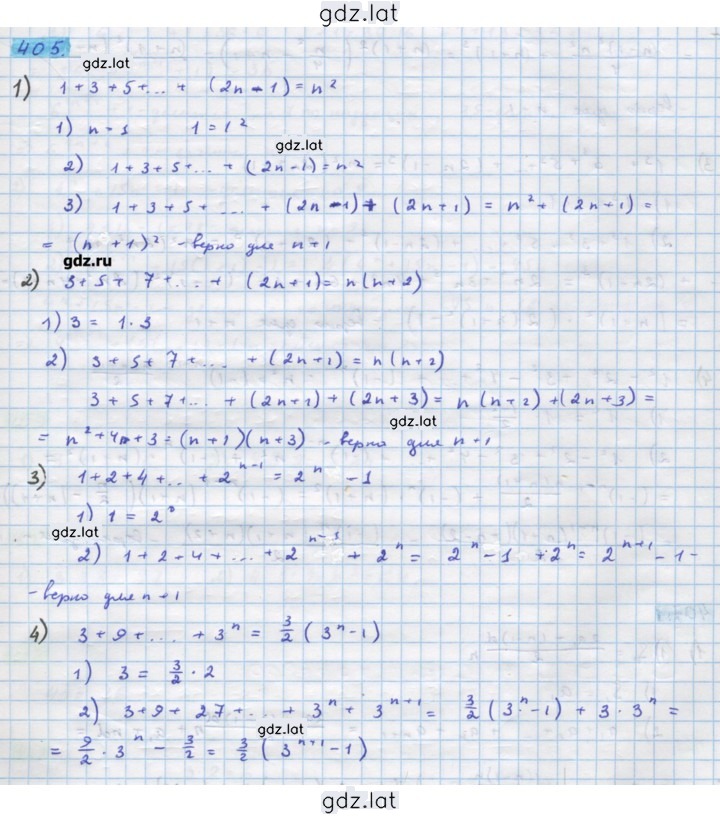 gdz.lat
405.
gdz.lat
1) 1 + 3 + 5 + ... + (2n - 1) = n²
1) n = 1 1 = 1²
gdz.lat
2) 1 + 3 + 5 + ... + (2n - 1) = n²
3) 1 + 3 + 5 + ... + (2n - 1) + (2n + 1) = n² + (2n + 1) =
= (n + 1)² - верно для n + 1
gdz.ru
2) 3 + 5 + 7 + ... + (2n + 1) = n(n + 2)
1) 3 = 1 · 3
2) 3 + 5 + 7 + ... + (2n + 1) = n(n + 2)
3 + 5 + 7 + ... + (2n + 1) + (2n + 3) = n(n + 2) + (2n + 3) =
gdz.lat
= n² + 4n + 3 = (n + 1)(n + 3) - верно для n + 1
3) 1 + 2 + 4 + ... + 2ⁿ⁻¹ = 2ⁿ - 1
1) 1 = 2⁰
gdz.lat
2) 1 + 2 + 4 + ... + 2ⁿ⁻¹ + 2ⁿ = 2ⁿ - 1 + 2ⁿ = 2ⁿ⁺¹ - 1 -
- верно для n + 1
4) 3 + 9 + ... + 3ⁿ = 3/2 (3ⁿ - 1)
1) 3 = 3/2 · 2
gdz.lat
2) 3 + 9 + 27 + ... + 3ⁿ + 3ⁿ⁺¹ = 3/2 (3ⁿ - 1) + 3 · 3ⁿ =
gdz.lat
= 9/2 · 3ⁿ - 3/2 = 3/2 (3ⁿ⁺¹ - 1)
gdz.lat